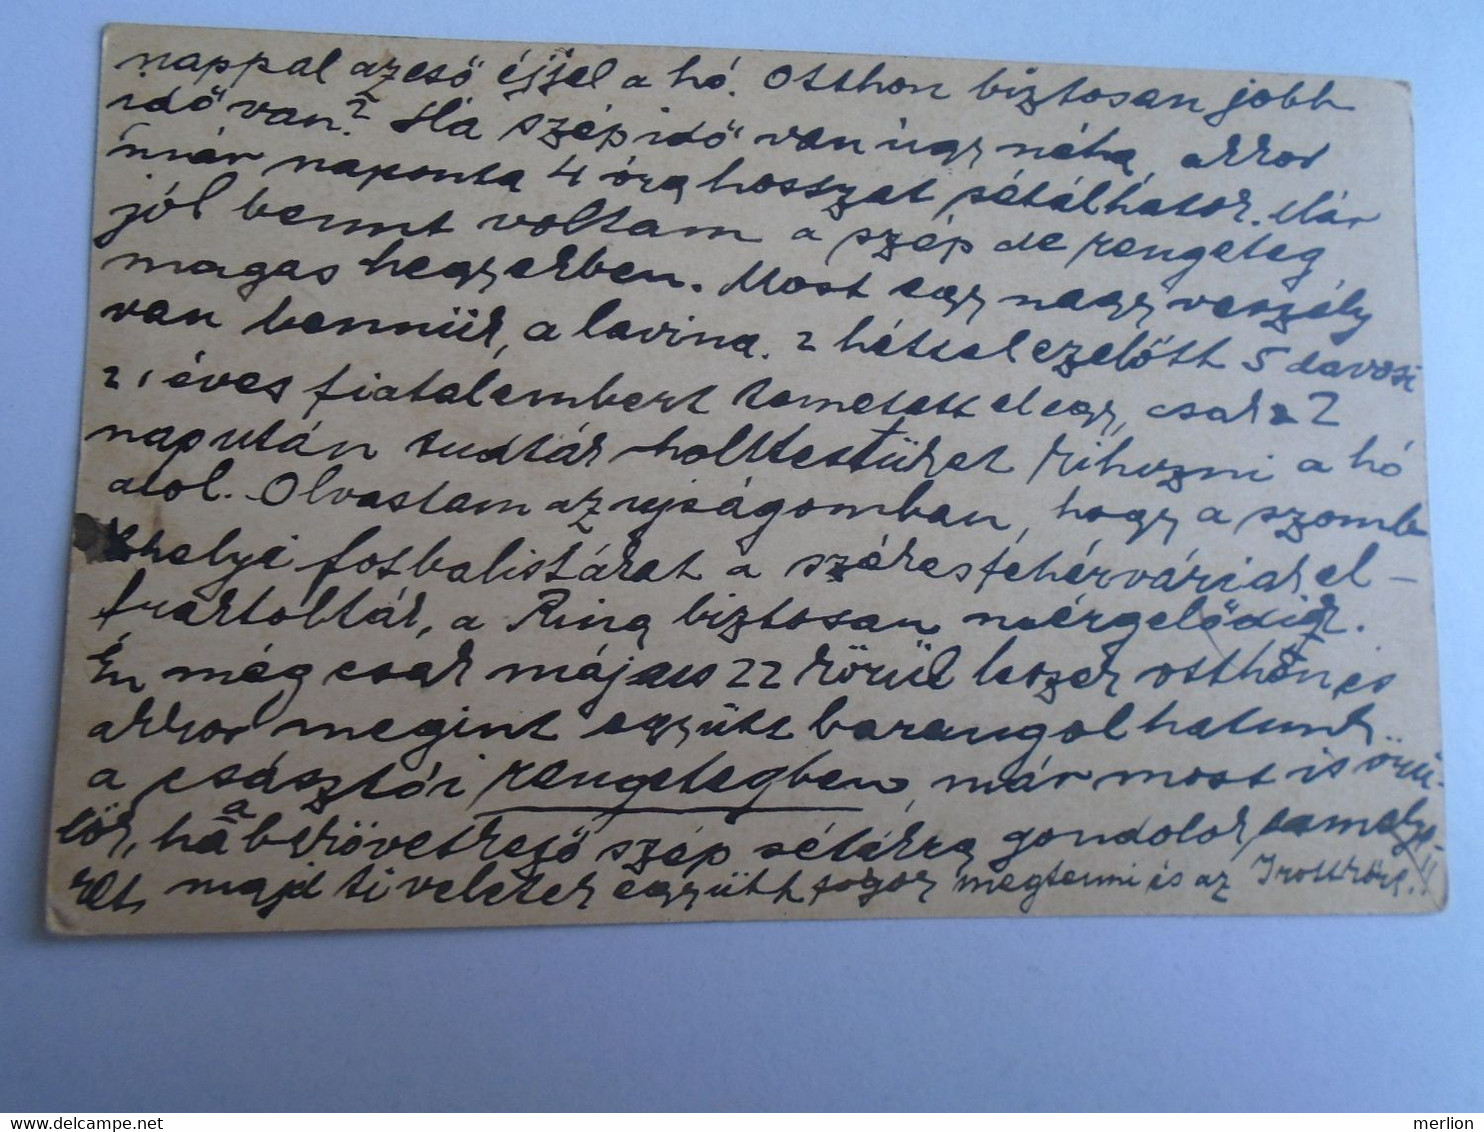 nappal az eső éjjel a hó. Otthon biztosan jobb
idő van? Ha szép idő van úgy néha, akkor
már naponta 4 óra hosszat sétálhatok. Már
jól bennt voltam a szép de rengeteg
magas hegyekben. Most egy nagy veszély
van bennük, a lavina. 2 héttel ezelőtt 5 davosi
21 éves fiatalembert temetett el egy, csak 2
nap után tudták holttestüket kihozni a hó
alol. Olvastam az ujságomban, hogy a szomb
helyi fotbalistákat a székesfehérváriak el-
frakkolták, a Ring biztosan mérgelődik.
Én még csak május 22 körül leszek otthon és
akkor megint együtt barangolhatunk
a császtói rengetegben, már most is örü-
lök, ha a bekövetkező szép sétákra gondolok, amelye-
ket majd ti veletek együtt fogok megtenni és az Irottkőre!!
merlion